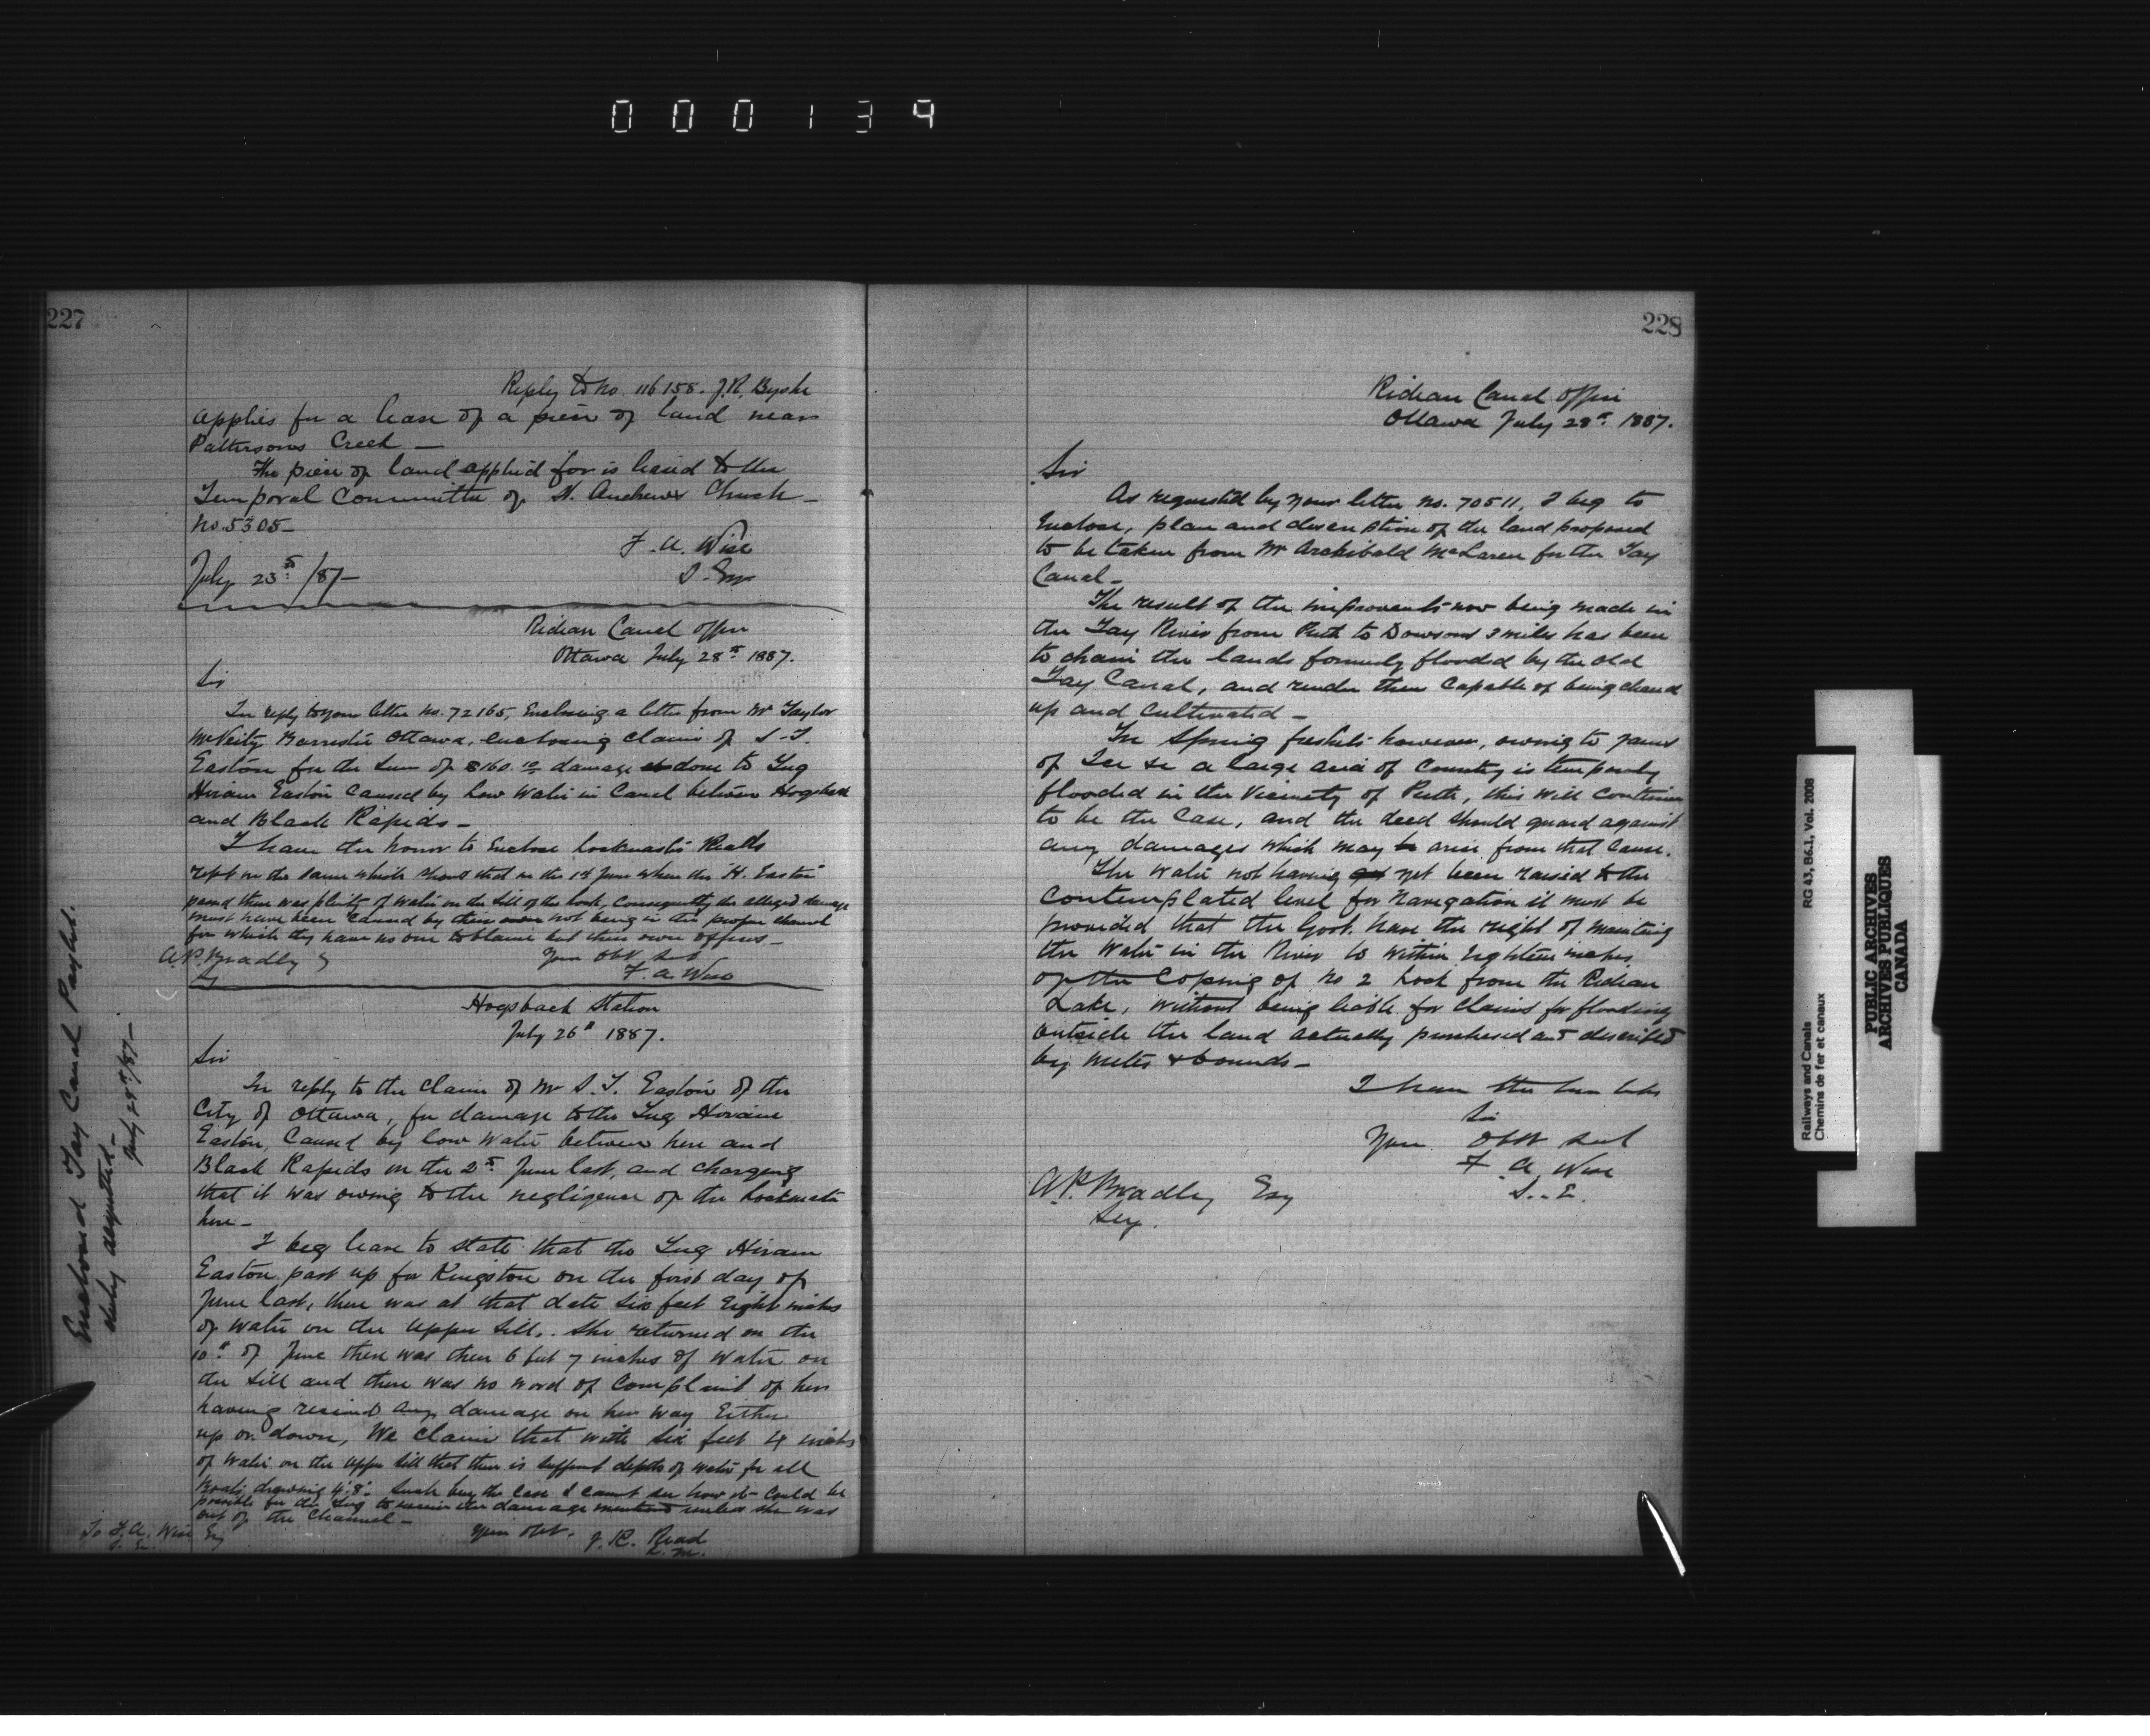 000139
227
Reply to No. 116158. J.R. Byshe
applies for a lease of a piece of land near
Pattersons Creek —
The piece of land applied for is leased to the
Temporal Committee of St. Andrews Church —
No. 5305 —
F. A. Wise
S. Eng
July 23rd /87 —
Rideau Canal Office
Ottawa July 28th 1887.
Sir
In reply to your letter No. 72165, Enclosing a letter from Mr Taylor
McVeity Barrister Ottawa, enclosing claim of S. T.
Easton for the sum of $160.10 damage done to Tug
Hiram Easton caused by low water in Canal between Hogsback
and Black Rapids —
I have the honor to Enclose Lockmaster Reads
rept on the same which shows that on the 1st June when the "H. Easton"
passed there was plenty of water on the sill of the lock, Consequently the alleged damage
must have been caused by their not being in the proper channel
for which they have no one to blame but their own officers —
A. P. Bradley
Sy
Your Obt Sevt
F. A. Wise
Hogsback Station
July 26th 1887.
Sir
In reply to the claim of Mr S. T. Easton of the
City of Ottawa, for damage to the Tug Hiram
Easton, caused by low water between here and
Black Rapids on the 2nd June last, and charging
that it was owing to the negligence of the Lockmaster
here —
I beg leave to state that the Tug Hiram
Easton past up for Kingston on the first day of
June last, there was at that date six feet Eight inches
of water on the upper sill. She returned on the
10th of June there was then 6 feet 7 inches of water on
the sill and there was no word of complaint of her
having received any damage on her way Either
up or down, We claim that with six feet 4 inches
of water on the upper sill that there is sufficent depth of water for all
Boats drawing 4'.8". Such being the case I cannot see how it could be
possible for the Tug to receive the damage mentioned unless she was
out of the Channel —
Your Obt.
J. R. Read
L. M.
To F. A. Wise Esq
S. E.
Enclosed Tay Canal Paylist.
duly acquitted —
July 28th/87 —
228
Rideau Canal Office
Ottawa July 28th 1887.
Sir
As requested by your letter No. 70511, I beg to
Enclose, plan and description of the land proposed
to be taken from Mr Archibald McLaren for the Tay
Canal —
The result of the improvements now being made in
the Tay River from Perth to Dowsons 3 miles has been
to drain the lands formerly flooded by the old
Tay Canal, and render them capable of being cleared
up and cultivated —
In Spring freshets however, owing to jams
of Ice &c a large area of Country is temporarily
flooded in the vicinity of Perth, this will continue
to be the case, and the deed should guard against
any damages which may arise from that cause.
The water not having yet been raised to the
contemplated level for Navigation it must be
provided that the Govt. have the right of maintaing
the water in the River to within Eighteen inches
of the Coping of No 2 Lock from the Rideau
Lake, without being liable for claims for flooding
outside the land actually purchased and described
by metes & bounds —
I have the honor to be
Sir
Your Obdt Sevt
F. A. Wise
S. E.
A. P. Bradley Esq
Secy.
Railways and Canals RG 43, B6.1, Vol. 2008
Chemins de fer et canaux
PUBLIC ARCHIVES
ARCHIVES PUBLIQUES
CANADA